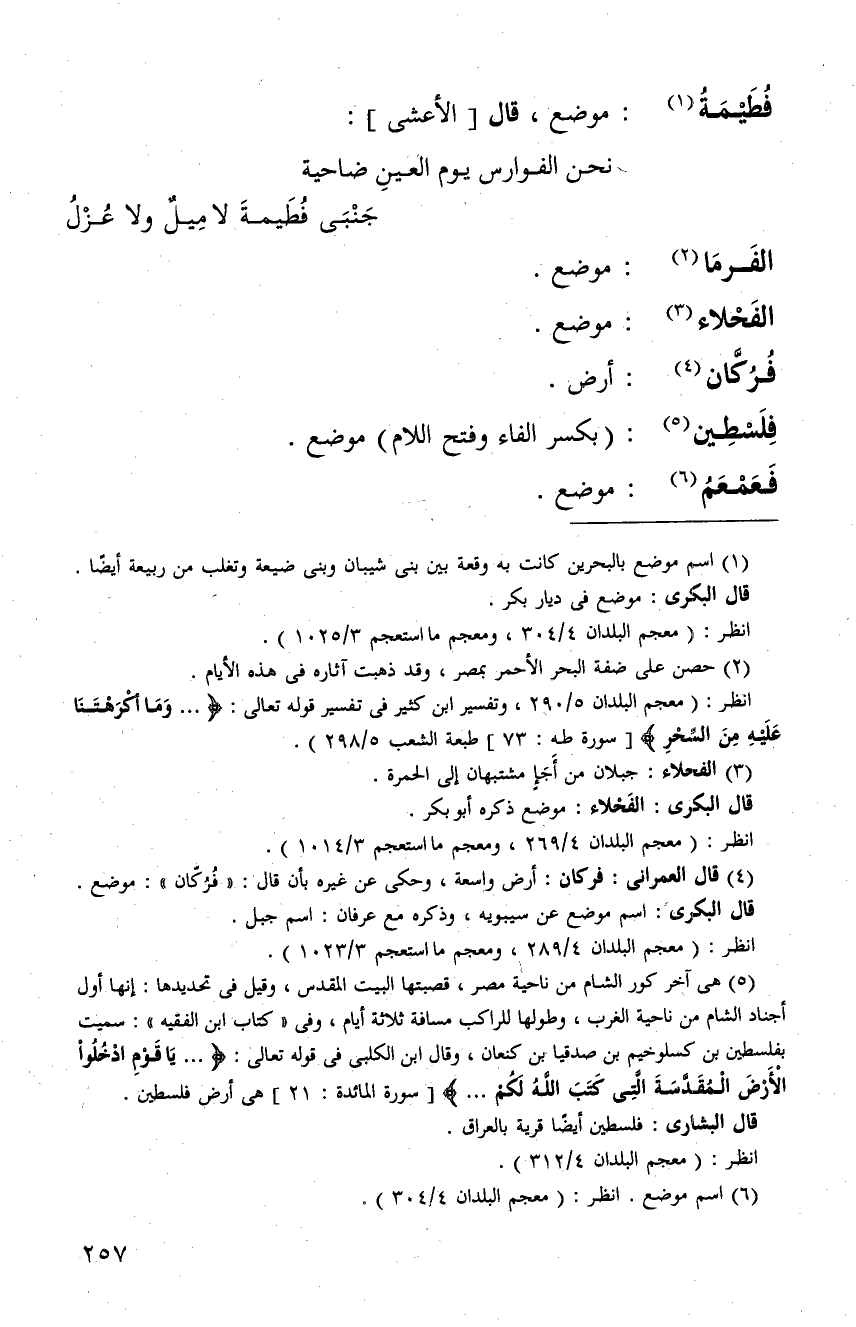 فُطَيْمَةُ(١) : موضع ، قال [ الأعشى ] :
نحن الفوارس يوم العينِ ضاحية
جَنْبَى فُطَيمةَ لا مِيلٌ ولا عُزْلُ
الفَرمَا(٢) : موضع .
الفَحْلاء(٣) : موضع .
فُرُكَّان(٤) : أرض .
فِلَسْطِين(٥) : ( بكسر الفاء وفتح اللام ) موضع .
فَعَمْعَمُ(٦) : موضع .
(١) اسم موضع بالبحرين كانت به وقعة بين بنى شيبان وبنى ضيعة وتغلب من ربيعة أيضًا .
قال البكرى : موضع فى ديار بكر .
انظر : ( معجم البلدان ٣٠٤/٤ ، ومعجم ما استعجم ١٠٢٥/٣ ) .
(٢) حصن على ضفة البحر الأحمر بمصر ، وقد ذهبت آثاره فى هذه الأيام .
انظر : ( معجم البلدان ٢٩٠/٥ ، وتفسير ابن كثير فى تفسير قوله تعالى : ﴿ ... وَمَا أَكْرَهْتَنَا
عَلَيْهِ مِنَ السِّحْرِ ﴾ [ سورة طه : ٧٣ ] طبعة الشعب ٢٩٨/٥ ) .
(٣) الفحلاء : جبلان من أَجَإٍ مشتبهان إلى الحمرة .
قال البكرى : الفَحْلاء : موضع ذكره أبو بكر .
انظر : ( معجم البلدان ٢٦٩/٤ ، ومعجم ما استعجم ١٠١٤/٣ ) .
(٤) قال العمرانى : فركان : أرض واسعة ، وحكى عن غيره بأن قال : « فُرُكّان » : موضع .
قال البكرى : اسم موضع عن سيبويه ، وذكره مع عرفان : اسم جبل .
انظر : ( معجم البلدان ٢٨٩/٤ ، ومعجم ما استعجم ١٠٢٣/٣ ) .
(٥) هى آخر كور الشام من ناحية مصر ، قصبتها البيت المقدس ، وقيل فى تحديدها : إنها أول
أجناد الشام من ناحية الغرب ، وطولها للراكب مسافة ثلاثة أيام ، وفى « كتاب ابن الفقيه » : سميت
بفلسطين بن كسلوخيم بن صدقيا بن كنعان ، وقال ابن الكلبى فى قوله تعالى : ﴿ ... يَا قَوْمِ ادْخُلُواْ
الْأَرْضَ الْمُقَدَّسَةَ الَّتِى كَتَبَ اللَّهُ لَكُمْ ... ﴾ [ سورة المائدة : ٢١ ] هى أرض فلسطين .
قال البشارى : فلسطين أيضًا قرية بالعراق .
انظر : ( معجم البلدان ٣١٢/٤ ) .
(٦) اسم موضع . انظر : ( معجم البلدان ٣٠٤/٤ ) .
٢٥٧